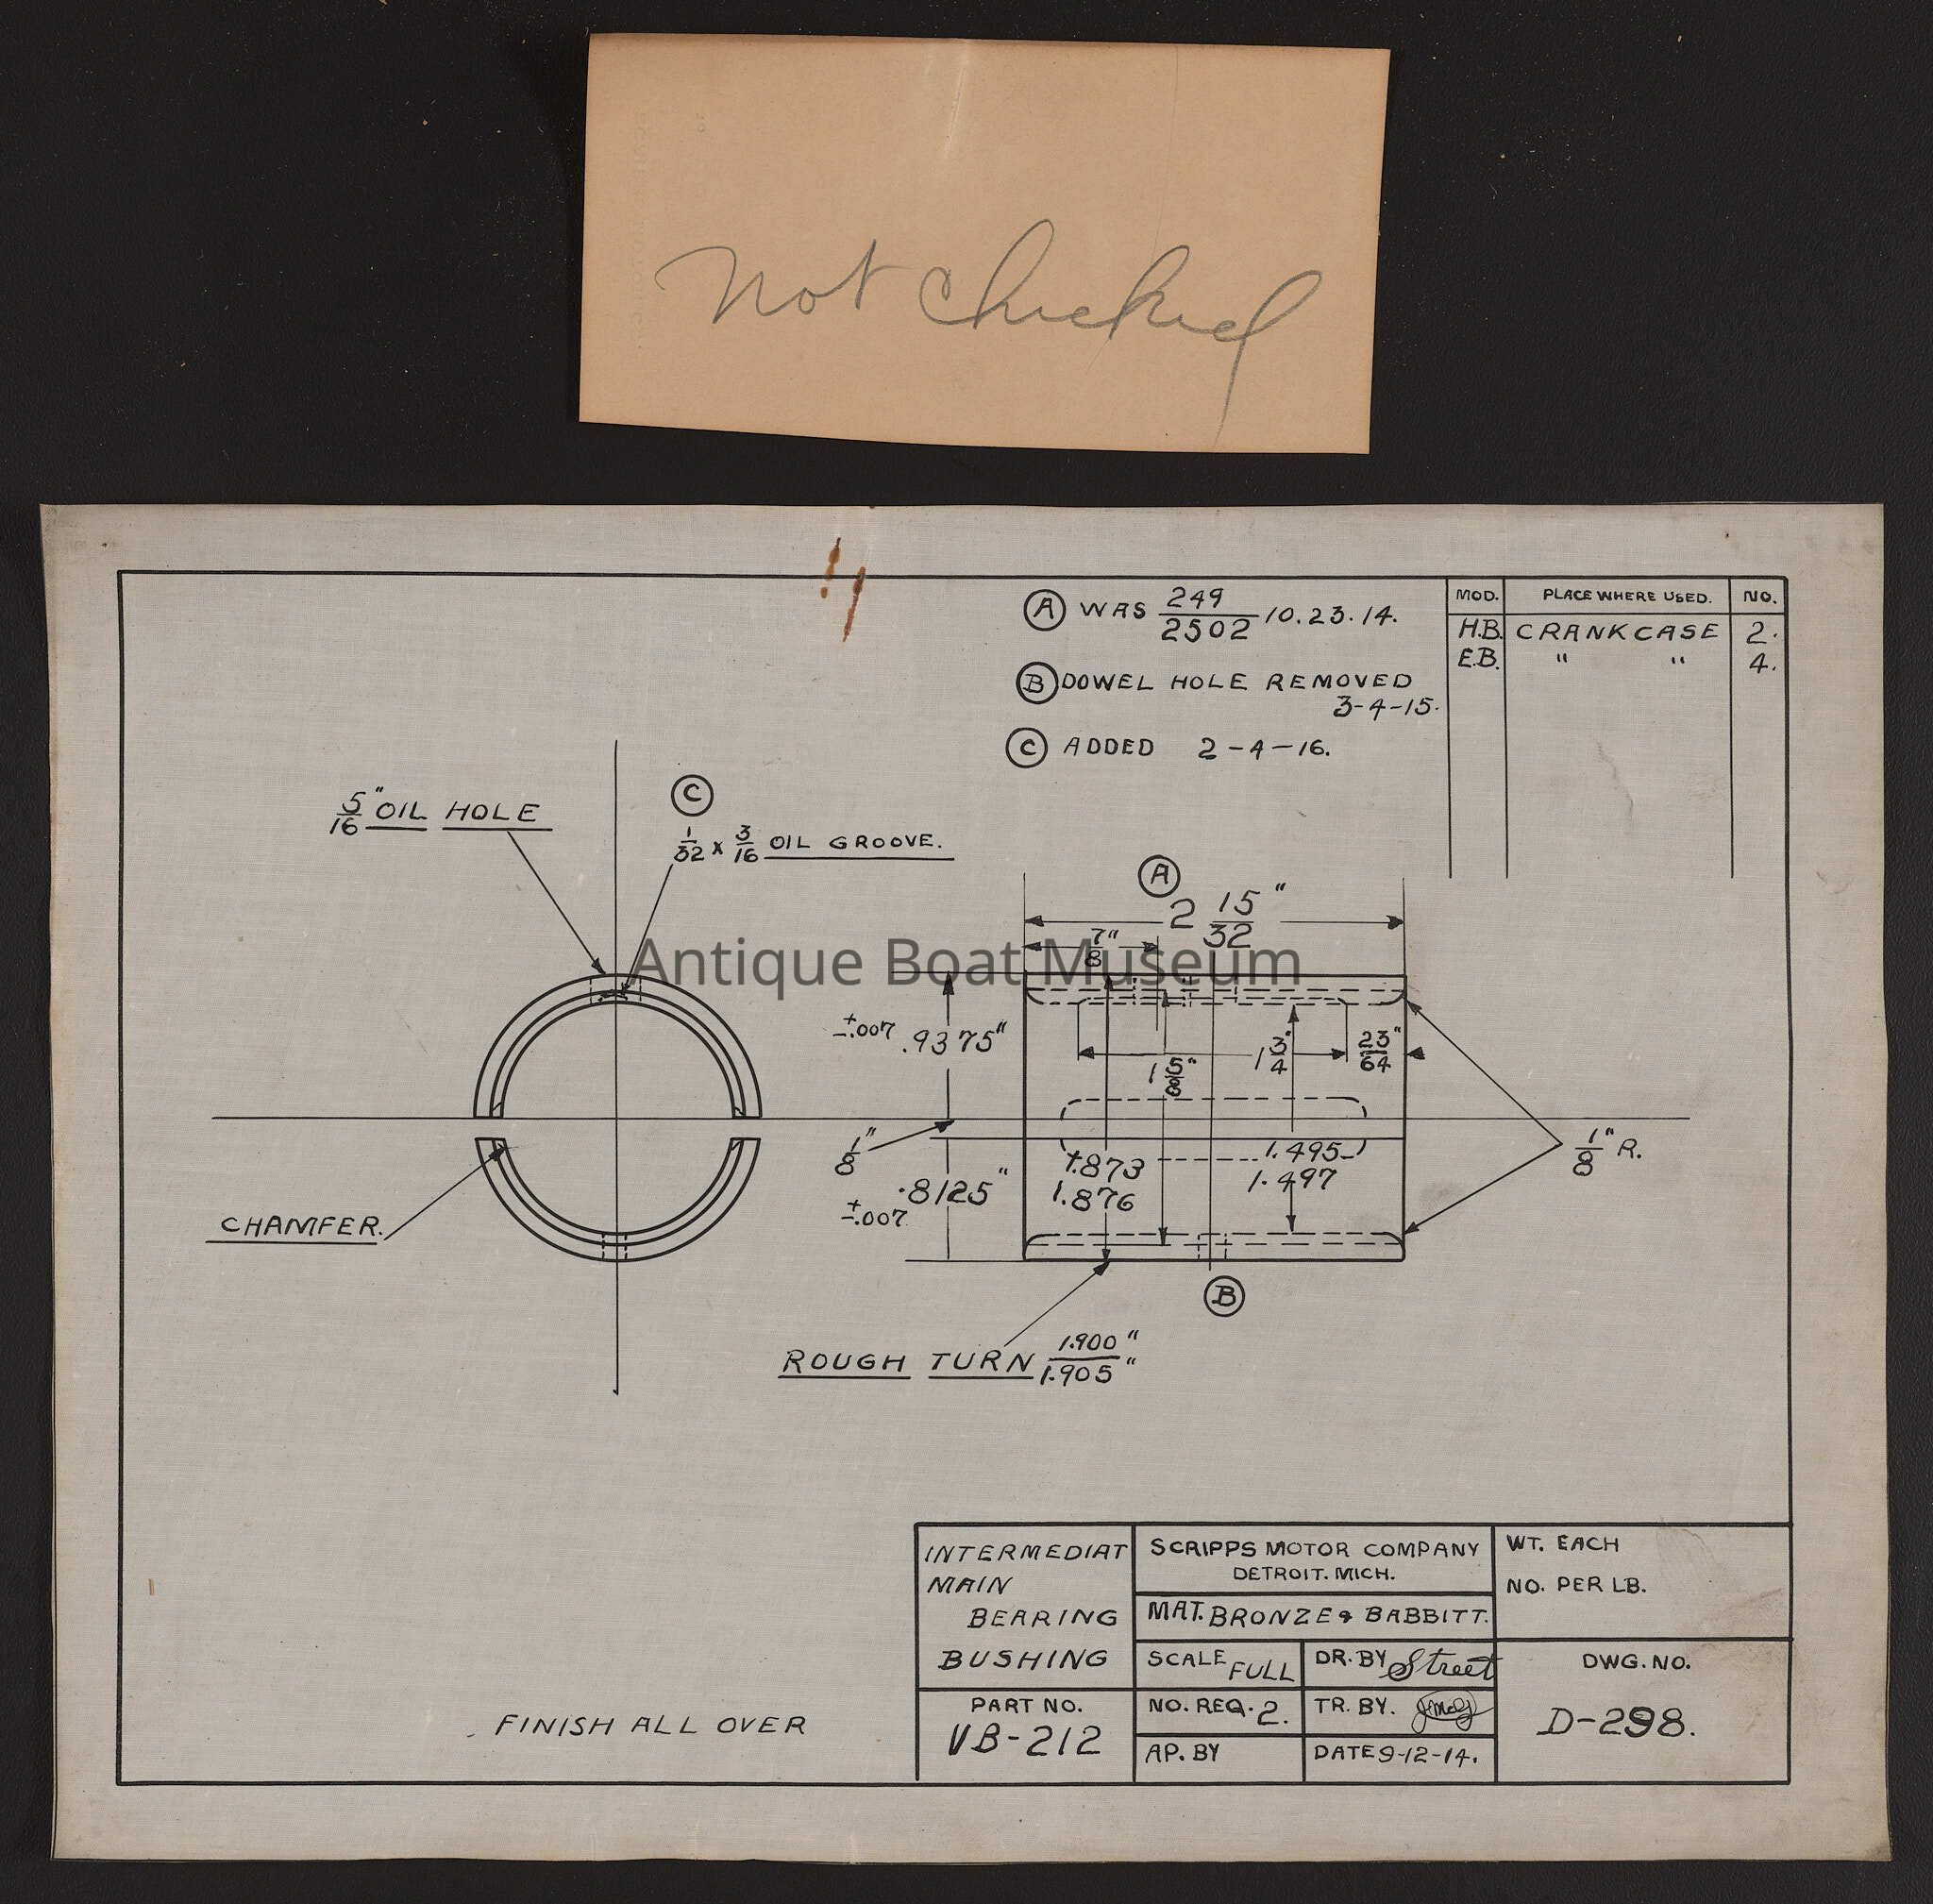 Not Checked
Ⓐ WAS 249/2502 10.23.14.
Ⓑ DOWEL HOLE REMOVED
3-4-15.
Ⓒ ADDED 2-4-16.
MOD. PLACE WHERE USED. NO.
H.B. CRANKCASE 2.
E.B. " " 4.
5/16" OIL HOLE
Ⓒ
1/32 x 3/16 OIL GROOVE.
Ⓐ
2 15/32"
7/8"
Antique Boat Museum
±.007 .9375"
1 3/4"
23/64"
1 5/8"
1/8"
.8125"
±.007
1.873
1.876
1.495
1.497
1/8" R.
CHAMFER.
Ⓑ
ROUGH TURN 1.900"/1.905"
INTERMEDIAT
MAIN
BEARING
BUSHING
PART NO.
VB-212
SCRIPPS MOTOR COMPANY
DETROIT. MICH.
MAT. BRONZE & BABBITT.
SCALE FULL
DR. BY Street
NO. REQ. 2.
TR. BY.
AP. BY
DATE 9-12-14.
WT. EACH
NO. PER LB.
DWG. NO.
D-298.
FINISH ALL OVER